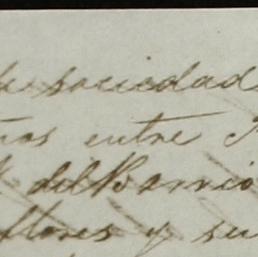 sociedad
entre
del Barrio
flores y su